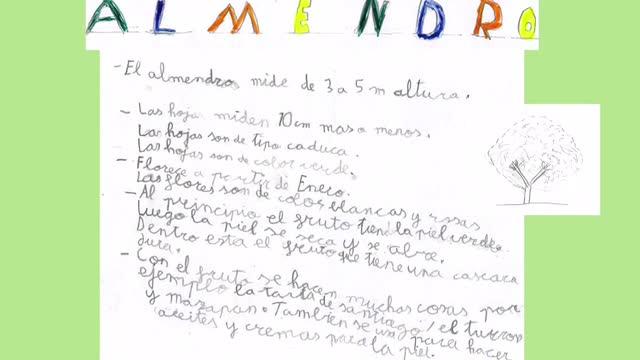 ALMENDRO
- El almendro mide de 3 a 5 m altura.
- Las hojas miden 10 cm mas o menos.
Las hojas son de tipo caduca.
Las hojas son de color verde.
- Florece a partir de Enero.
Las flores son de color blancas y rosas
- Al principio el fruto tiene la piel verde.
Luego la piel se seca y se abre.
Dentro esta el fruto que tiene una cascara
dura.
- Con el fruta se hacen muchas cosas por
ejemplo la tarta de santiago, el turron
y mazapan. Tambien se usa para hacer
aceites y cremas para la piel.